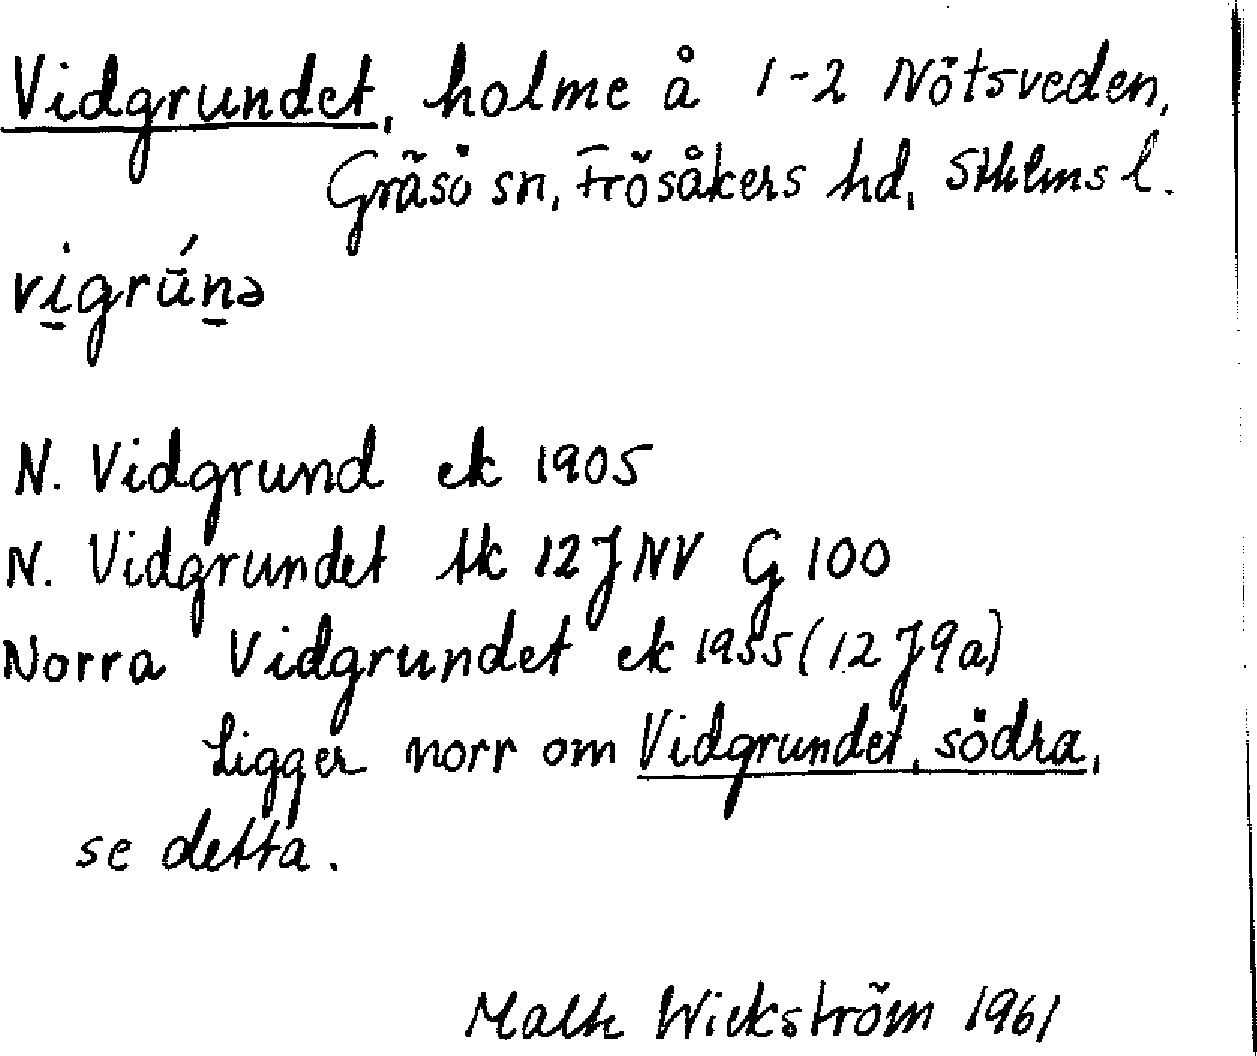 Vidgrundet, holme å 1-2 Nötsveden,
Gräsö sn, Frösåkers hd, Sthlms l.
vi̱grú̄ṉə
N. Vidgrund ek 1905
N. Vidgrundet tk 12 J NV G 100
Norra Vidgrundet ek 1955 (12 J 9a)
Ligger norr om Vidgrundet, södra,
se detta.
Malte Wickström 1961